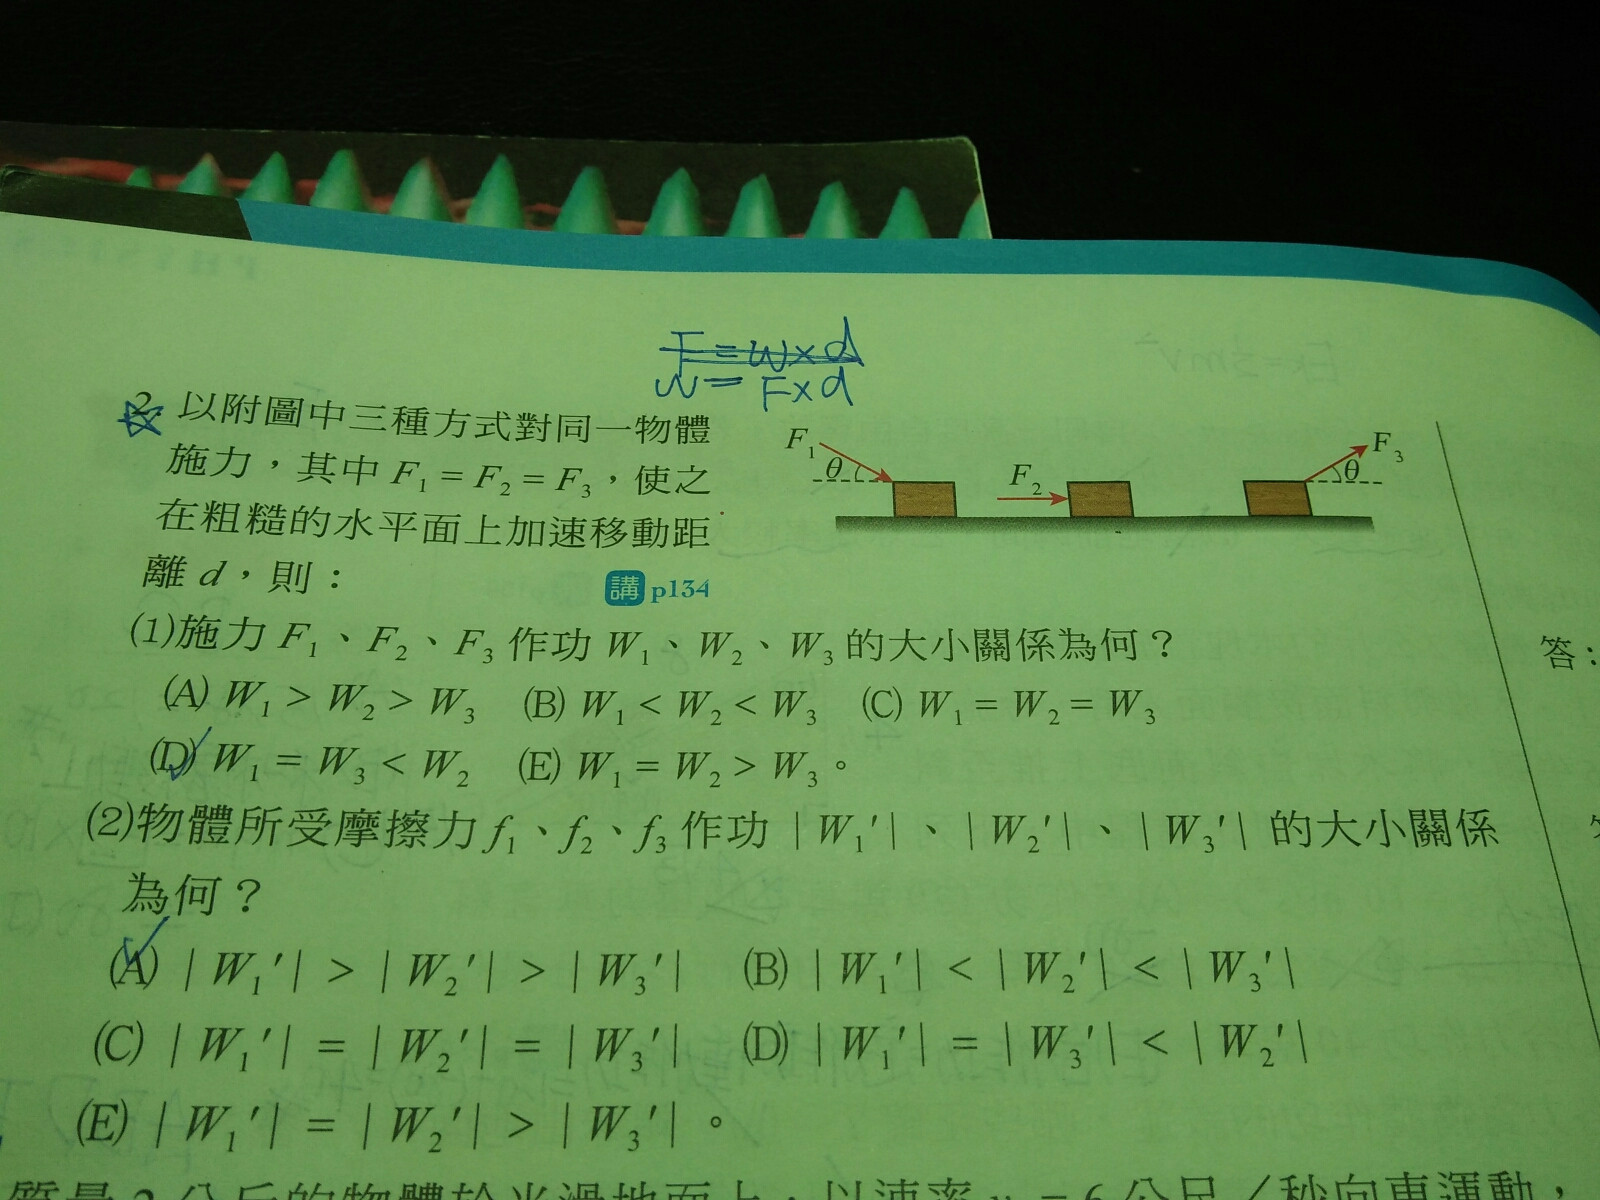 F = W × d
W = F × d
2. 以附圖中三種方式對同一物體
施力，其中 F₁ = F₂ = F₃，使之
在粗糙的水平面上加速移動距
離 d，則：
講 p134
F₁ θ F₂ F₃ θ
(1)施力 F₁、F₂、F₃ 作功 W₁、W₂、W₃ 的大小關係為何？
(A) W₁ > W₂ > W₃ (B) W₁ < W₂ < W₃ (C) W₁ = W₂ = W₃
(D) W₁ = W₃ < W₂ (E) W₁ = W₂ > W₃。
(2)物體所受摩擦力 f₁、f₂、f₃ 作功 | W₁′|、| W₂′|、| W₃′| 的大小關係
為何？
(A) | W₁′| > | W₂′| > | W₃′| (B) | W₁′| < | W₂′| < | W₃′|
(C) | W₁′| = | W₂′| = | W₃′| (D) | W₁′| = | W₃′| < | W₂′|
(E) | W₁′| = | W₂′| > | W₃′|。
答：
質量 2 公斤的物體於光滑地面上，以速率 v = 6 公尺／秒向東運動，